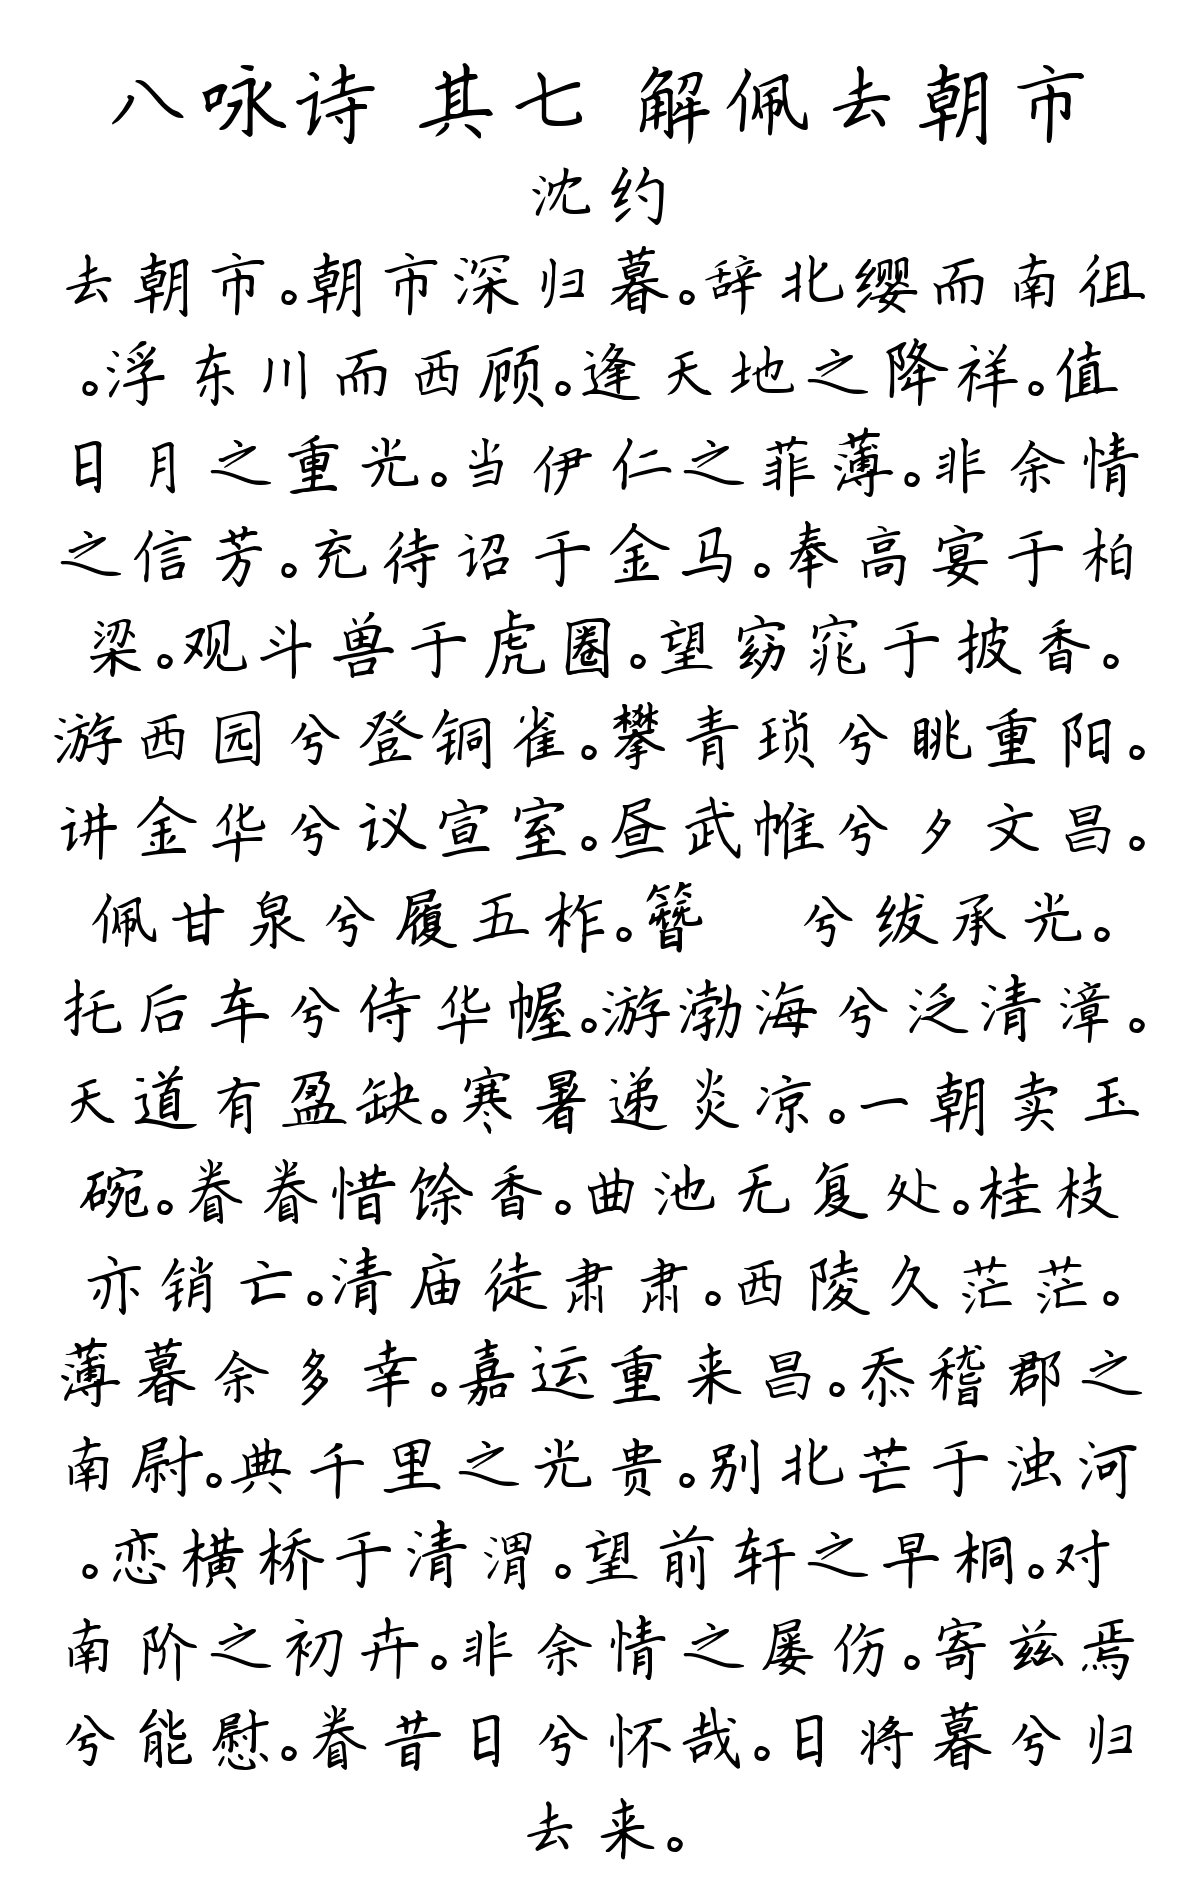 八咏诗 其七 解佩去朝市
沈约
去朝市。朝市深归暮。辞北缨而南徂
。浮东川而西顾。逢天地之降祥。值
日月之重光。当伊仁之菲薄。非余情
之信芳。充待诏于金马。奉高宴于柏
梁。观斗兽于虎圈。望窈窕于披香。
游西园兮登铜雀。攀青琐兮眺重阳。
讲金华兮议宣室。昼武帷兮夕文昌。
佩甘泉兮履五柞。簪 兮绂承光。
托后车兮侍华幄。游渤海兮泛清漳。
天道有盈缺。寒暑递炎凉。一朝卖玉
碗。眷眷惜馀香。曲池无复处。桂枝
亦销亡。清庙徒肃肃。西陵久茫茫。
薄暮余多幸。嘉运重来昌。忝稽郡之
南尉。典千里之光贵。别北芒于浊河
。恋横桥于清渭。望前轩之早桐。对
南阶之初卉。非余情之屡伤。寄兹焉
兮能慰。眷昔日兮怀哉。日将暮兮归
去来。